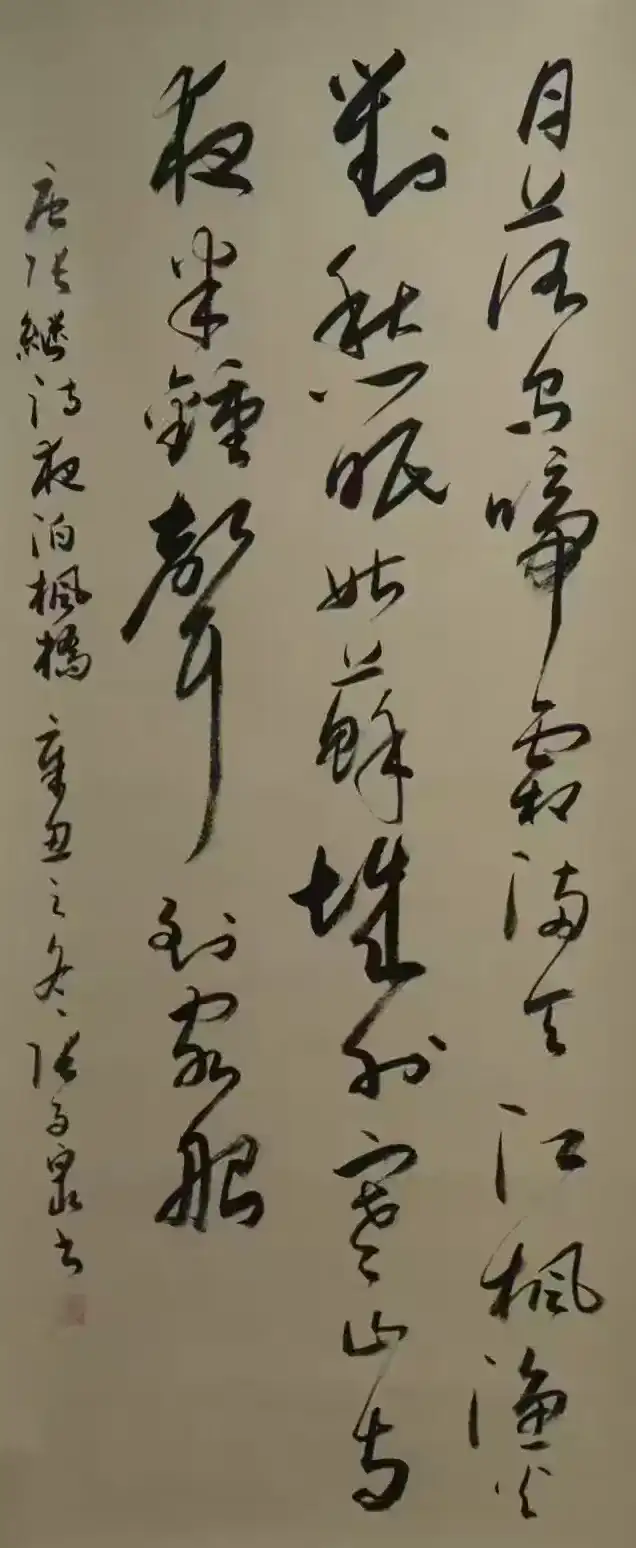 月落烏啼霜滿天江楓漁火
對愁眠姑蘇城外寒山寺
夜半鍾聲到客船
唐張繼詩夜泊楓橋辛丑之冬張 泉書